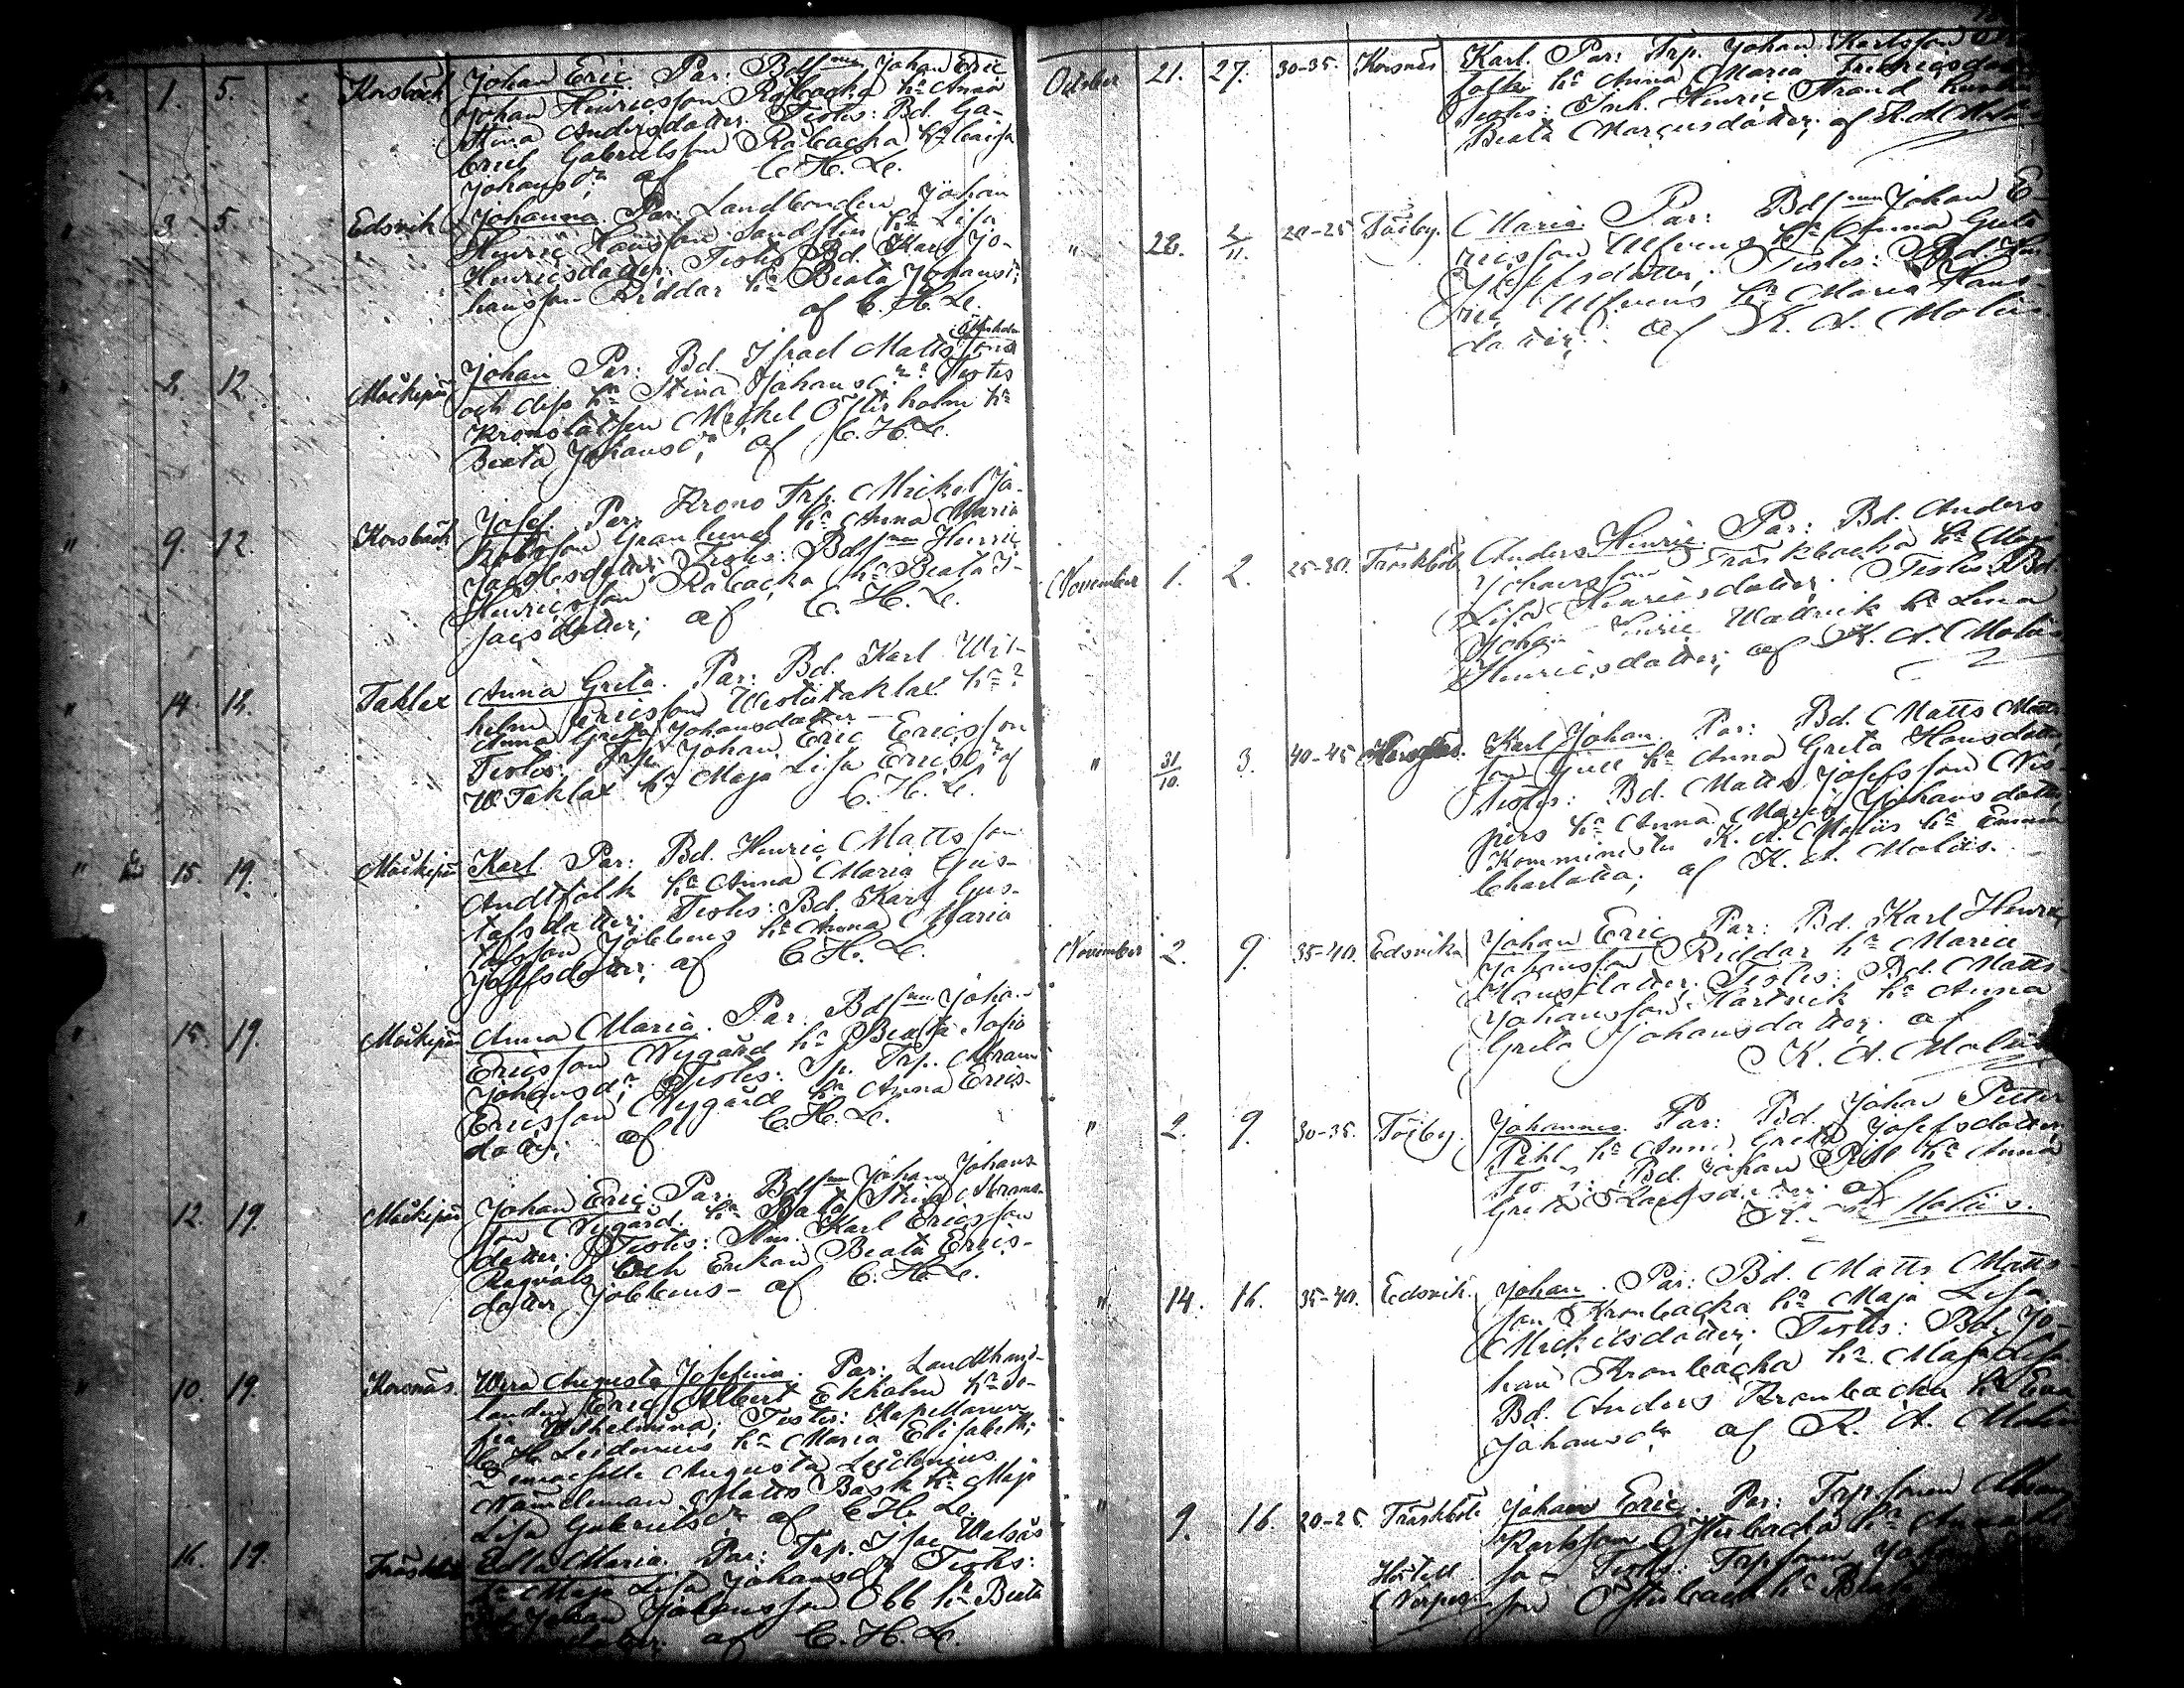 1. 5. Korsbäck Johan Eric. Par: Bdsman Johan Eric
Johan Henricsson Råbacka h: Anna
Stina Andersdotter. Testes: Bd. Ga-
briel Gabrielsson Råbacka h: Caisa
Johansdr af C. H. L.
" 3. 5. Edsvik Johanna. Par: Landbonden Johan
Henric Hansson Sandsten h: Lisa
Henricsdotter; Testes Bd. Karl Jo-
hansson Riddar h: Beata Johansd:
af C. H. L.
" 2. 12. Mosskipää Johan Par: Bd. Israel Mattsson
och dess h: Stina Johansdr; Testes
Kronolatsen Mickel Österholm h:
Beata Johansdr, af C. H. L.
" 9. 12. Korsbäck Josef. Par: Krono Trp. Mickel Ja-
kobsson Granlund h: Anna Maria
Jacobsdotter; Testes: Bdsman Henric
Henricsson Råbacka h: Beata I-
sacsdotter; af C. H. L.
" 14. 12. Taklax Anna Greta. Par: Bd. Karl Wil-
helm Ericsson Westertaklax h:
Anna Greta Johansdotter -
Testes: Trp. Johan Eric Ericsson
W. Taklax h: Maja Lisa Ericsdr af
C. H. L.
" 15. 19. Karl Par: Bd. Henric Mattsson
Andtfolk h: Anna Maria Gus-
tafsdotter; Testes: Bd. Karl Gus-
tafsson Jåbbens h: Anna Maria
Josefsdotter; af C. H. L.
" 15. 19. Anna Maria. Par: Bdsman Johan
Ericsson Nygård h: Beata Sofia
Johansdr; Testes: Trp. Abram
Ericsson Nygård h: Anna Erics-
dotter; af C. H. L.
" 12. 19. Johan Eric Par: Bdsman Johan Johans-
son Nygård. h: Beata Stina Abrams-
dotter; Testes: Karl Ericsson
Ragvals och Enkan Beata Erics-
dotter Jåbbens - af C. H. L.
" 10. 19. Korsnäs. Wera Augusta Josefina. Par: Landthand-
landen Eric Albert Ekholm h: So-
fia Wilhelmina; Testes: Kapellanen
C. H. Leidenius h: Maria Elisabeth;
Demoiselle Augusta Leidenius.
Nämndeman Matts Bask h: Maja
Lisa Gabrielsdr af C. H. L.
19. Träskböle Edla Maria. Par: Trp. Isac Walsås
h: Maja Lisa Johansdr Testes:
Johan Jakobsson Obb h: Beata
af C. H. L.
October 21. 27. 30-35. Korsnäs Karl. Par: Trp. Johan Karlsson
folk h: Anna Maria Fredricsdotter
Testes: Inh. Henric Strand hustru
Beata Marcusdotter; af K. A. Moliis
" 28. 2/11. 20-25 Töjby. Maria. Par: Bdsman Johan E-
ricsson Ulfvens h: Anna Greta
Josefsdotter; Testes: Bd. Hen-
ric Ulfvens h: Maria Hans-
dotter; af K. A. Moliis.
November 1. 2. 25-30. Träskböle Anders Henric. Par: Bd. Anders
Johansson Träskbacka h: Maja
Lisa Henricsdotter; Testes: Bd.
Johan Henric Wadvik h: Lena
Henricsdotter; af K. A. Moliis
" 31/10. 3. 40-45 Korsnäs. Karl Johan. Par: Bd. Matts Matts-
son Gull h: Anna Greta Hansdotter
Testes: Bd. Matts Josefsson Nis-
pers h: Anna Maria Johansdotter,
Komminister K. A. Moliis h: Emma
Charlotta; af K. A. Moliis.
November 2. 9. 35-40. Edsvik Johan Eric Par: Bd. Karl Henric
Johansson Riddar h: Maria
Hansdotter. Testes: Bd. Matts
Johansson Hartvik h: Anna
Greta Johansdotter; af
K. A. Moliis
" 2. 9. 30-35. Töjby. Johannes. Par: Bd. Johan Petter
Pihl h: Anna Greta Josefsdotter,
Testes: Bd. Johan Pihl h: Anna
Greta af
Moliis.
" 14. 16. 35-40. Edsvik. Johan. Par: Bd. Matts Matts-
son Kronbacka h: Maja Lisa
Mickelsdotter; Testes: Bd. Jo-
han Kronbacka h: Maja Lisa
Bd. Anders Kronbacka h: Eva
Johansdr af K. A. Moliis
" 9. 16. 20-25 Träskböle Johan Eric. Par: Trp.sonen
Karlsson Österbacka h: Anna
Testes: Trpsonen Johan
son Österback h: Beata